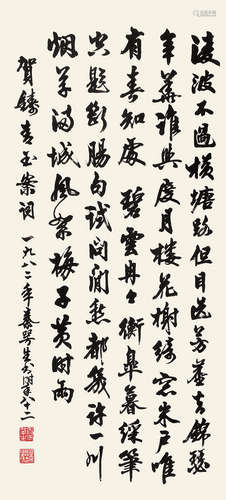 淩波不過橫塘路但目送芳塵去錦瑟
年華誰與度月樓花榭綺窓朱戶唯
有春知處 碧雲冉々衡皋暮綵筆
空題斷腸句試問閒愁都幾許一川
烟草滿城風絮梅子黃时雨
賀鑄青玉案詞 一九八二年秦咢生書时年八十二